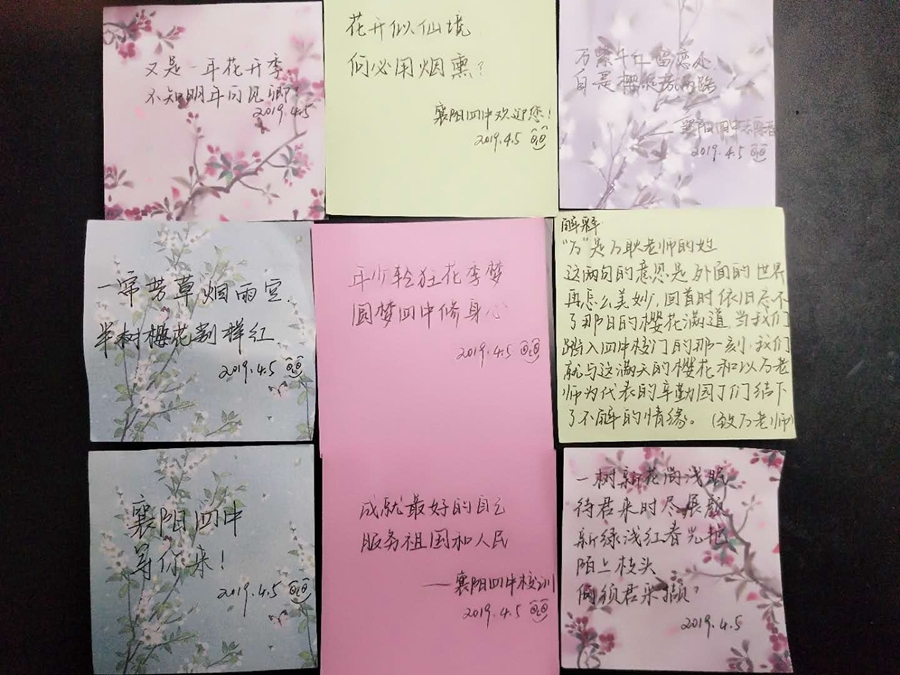 又是一年花开季
不知明年问见卿?
2019.4.5
花开似仙境
何必用烟熏?
襄阳四中欢迎您!
2019.4.5
自是樱花
襄阳四中
2019.4.5
一帘芳草烟雨空,
半树樱花别样红
2019.4.5
年少轻狂花季梦
圆梦四中修身心
2019.4.5
解释
“万”是万耿老师的姓
这两句的意思是外面的世界
再怎么美妙,回首时依旧忘不
了那日的樱花满道,当我们
踏入四中校门的那一刻,我们
就与这满天的樱花和以万老
师为代表的辛勤园丁们结下
了不解的情缘。(致万老师)
襄阳四中
等你来!
2019.4.5
成就最好的自己
服务祖国和人民
——襄阳四中校训
2019.4.5
一树新花尚浅眠
待君来时尽展颜
新绿浅红春光
陌上枝头
何须君采撷?
2019.4.5